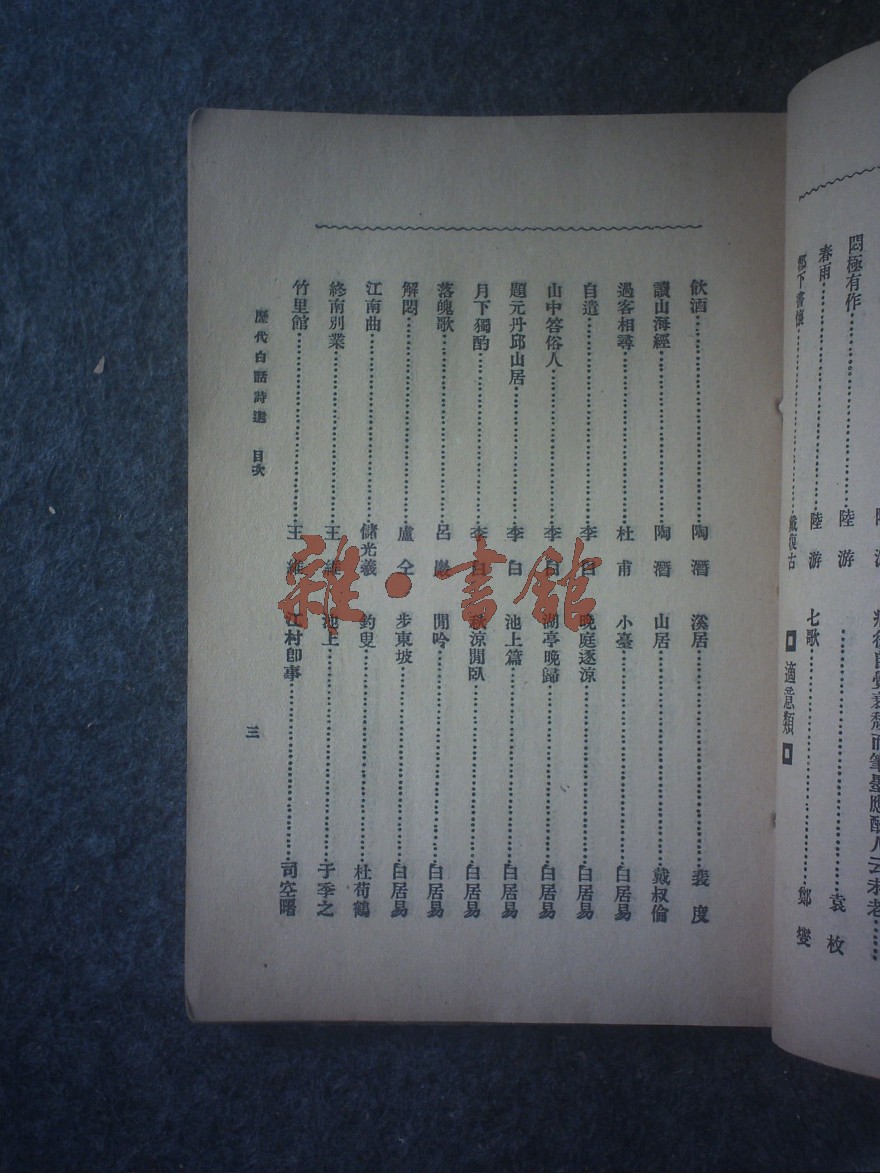 悶極有作……陸游……袁枚
春雨……陸游 七歌……鄭燮
都下書懷……戴復古 適意類
飲酒……陶潛 溪居……裴度
讀山海經……陶潛 山居……戴叔倫
過客相尋……杜甫 小臺……白居易
自遣……李白 晚庭逐涼……白居易
山中答俗人……李白 湖亭晚歸……白居易
題元丹邱山居……李白 池上篇……白居易
月下獨酌……李白 秋涼閒臥……白居易
落魄歌……呂巖 閒吟……白居易
解悶……盧仝 步東坡……白居易
江南曲……儲光羲 釣叟……杜荀鶴
終南別業……王維 池上……于季之
竹里館……王維 江村卽事……司空曙
歷代白話詩選 目次 三
雜·書館